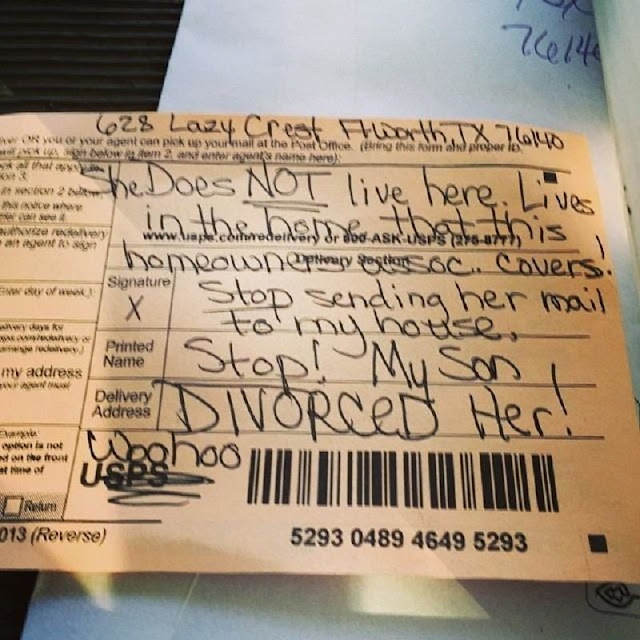 76140
628 Lazy Crest Ft Worth, TX 76140
OR you or your agent can pick up your mail at the Post Office. (Bring this form and proper ID.
will pick up, sign below in item 2, and enter agent's name here):
She Does NOT live here. Lives
in section 2 below,
this notice where
in the home that this
www.usps.com/redelivery or 800-ASK-USPS (275-8777)
authorize redelivery
an agent to sign
homeowners assoc. covers!
Delivery Section
Signature
X
Stop sending her mail
to my house.
Enter day of week.):
Printed
Name
Stop! My Son
my address
Delivery
Address
DIVORCED Her!
Example:
option is not
on the front
time of
Woohoo
USPS
Return
013 (Reverse)
5293 0489 4649 5293